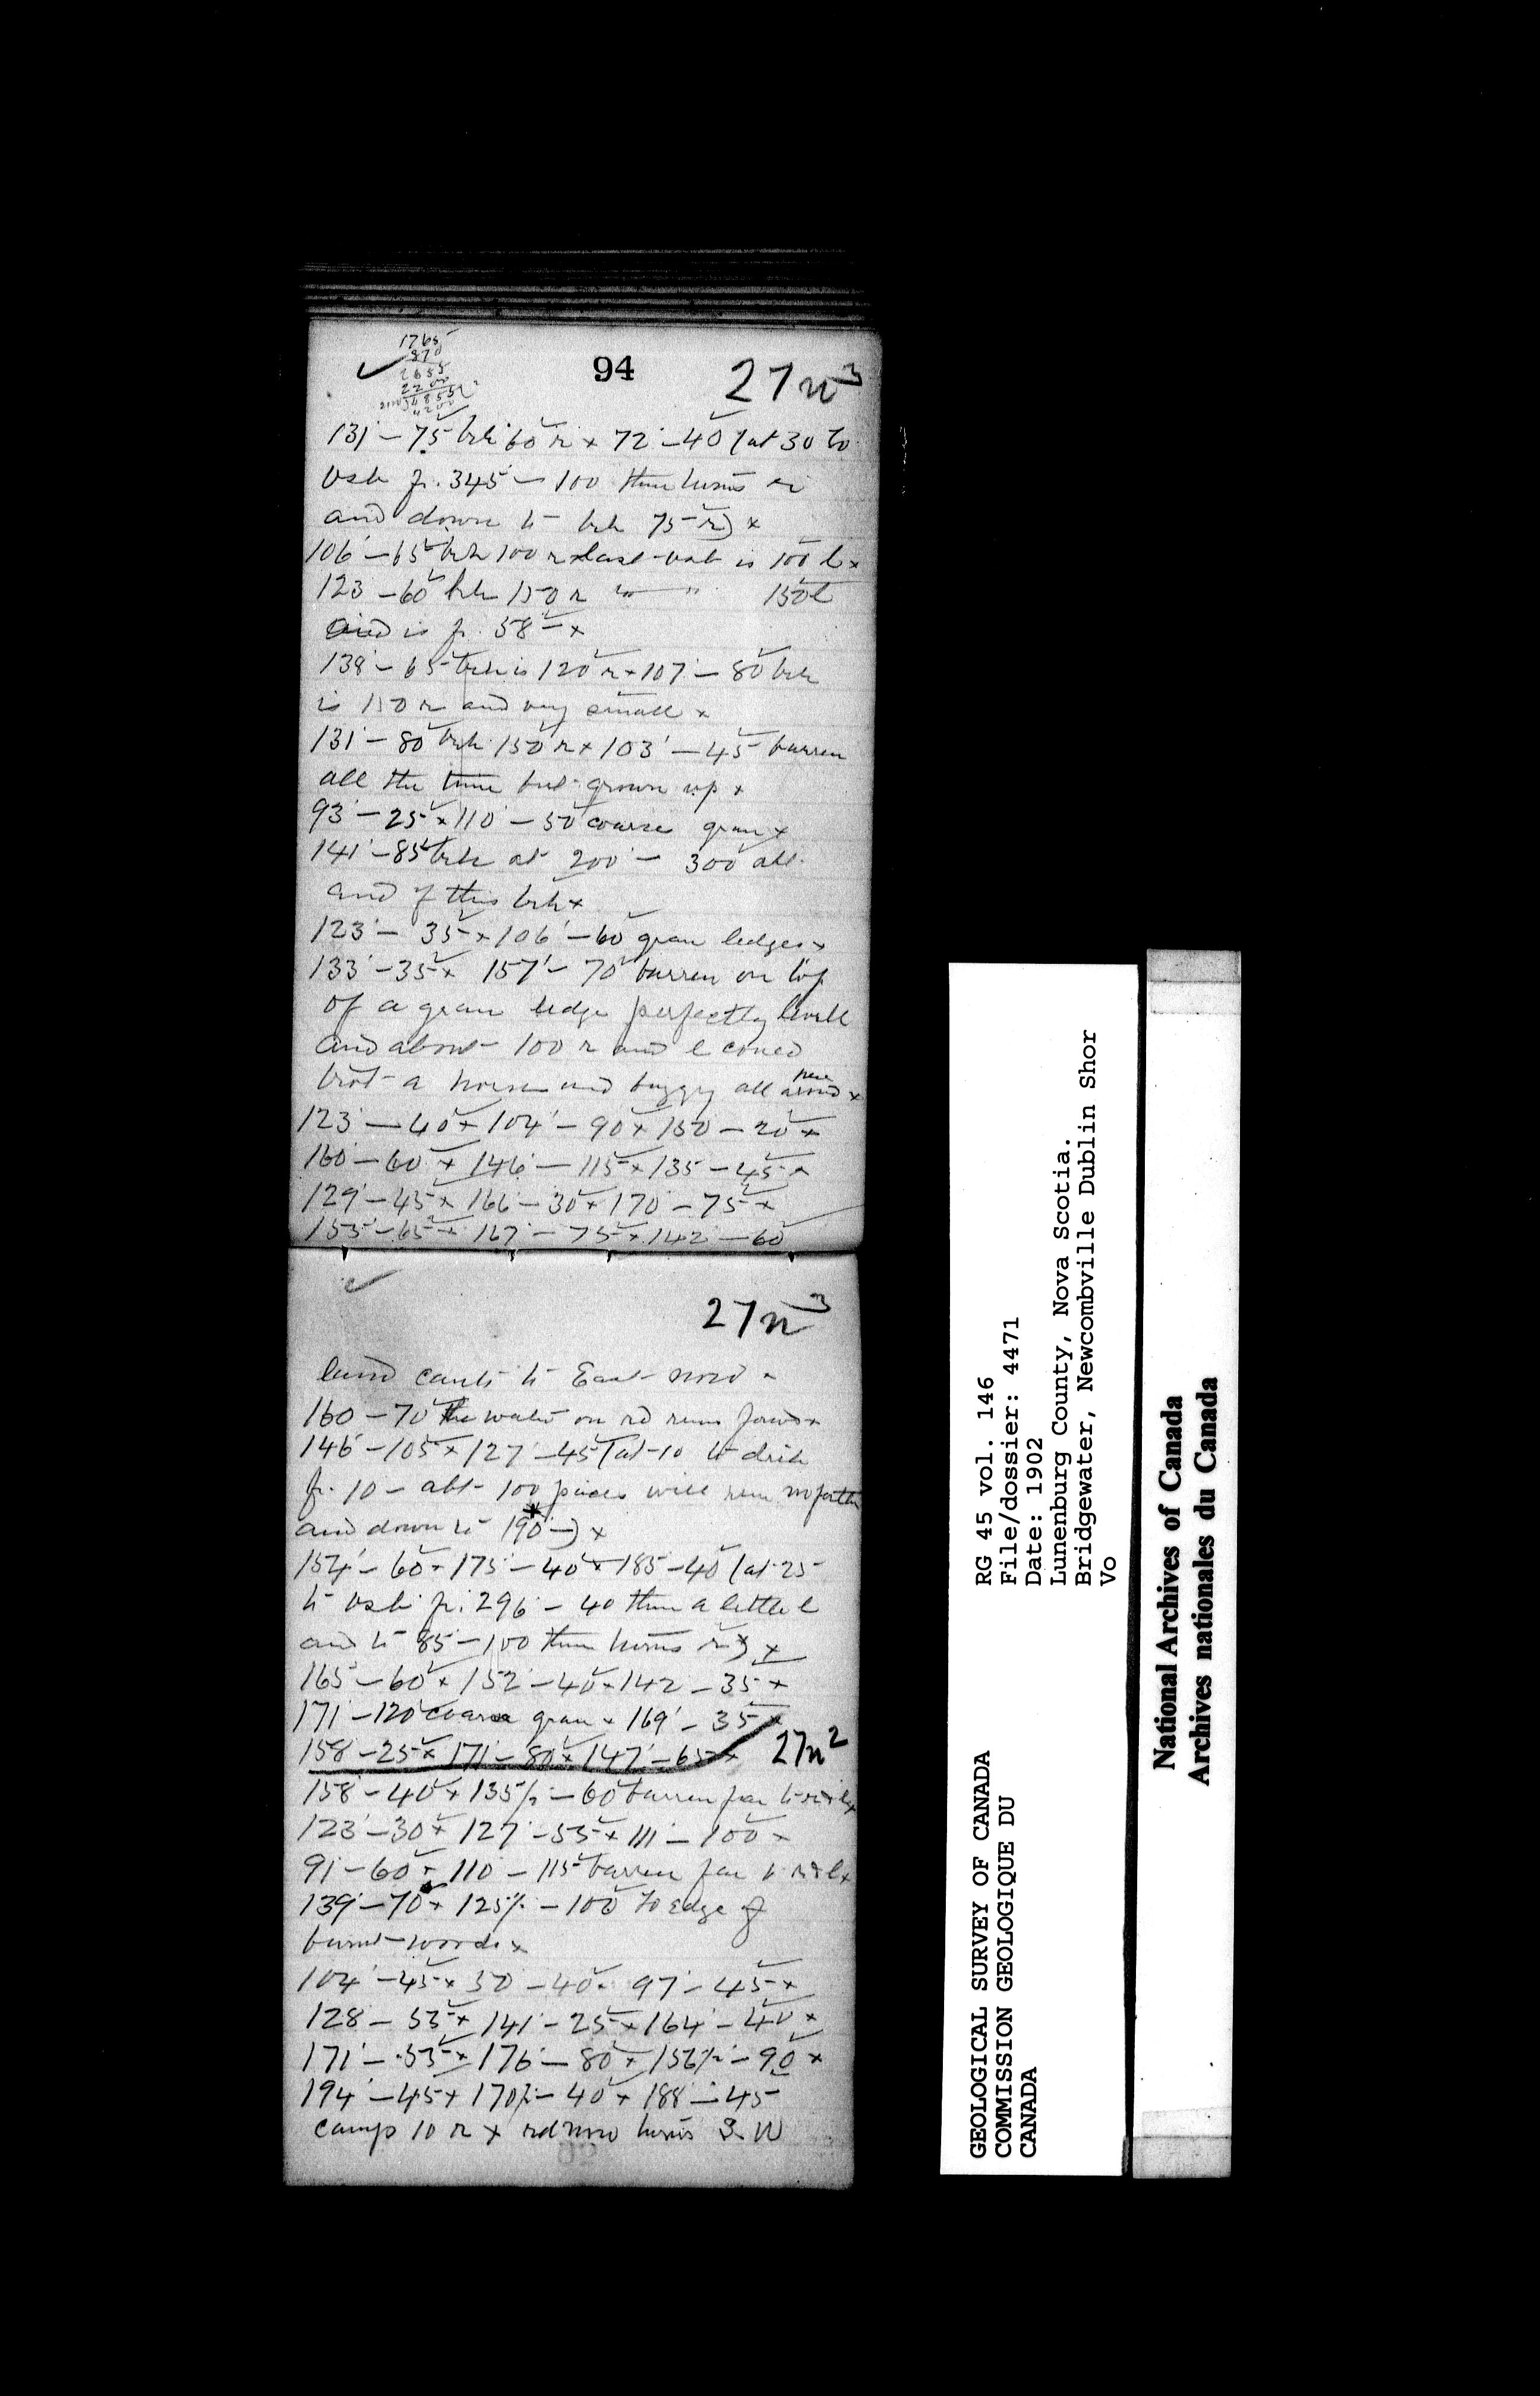 1765
870
2655
2200
4855
4200
94
27n3
131 - 75 brk 60 r x 72 - 40 (at 30 to
vsb fr. 345 - 100 then turns r
and down to brk 75 r) x
106 - 65 brk 100 r x last vsb is 100 l x
123 - 60 brk 150 r " " 150 l
and is fr. 58 - x
138 - 65 brk is 120 r x 107 - 80 brk
is 150 r and very small x
131 - 80 brk 150 r x 103 - 45 barren
all the time but grown up x
93 - 25 x 110 - 50 coarse gran x
141 - 85 brk at 200 - 300 abt
end of this brk x
123 - 35 x 106 - 60 gran ledges x
133 - 35 x 157 - 70 barren on top
of a gran ledge perfectly levell
and about 100 r and l coued
trot a horse and buggy all around here x
123 - 40 x 104 - 90 x 150 - 20 x
160 - 60 x 146 - 115 x 135 - 45 x
129 - 45 x 166 - 30 x 170 - 75 x
155 - 65 x 167 - 75 x 142 - 60
27n3
land cants to East now x
160 - 70 the water on rd runs forwd x
146 - 105 x 127 - 45 (at 10 to drih
fr. 10 - abt 100 paces will run no farther
and down to 190 -) x
154 - 60 x 175 - 40 x 185 - 40 (at 25
to vsb fr. 296 - 40 then a little l
and to 85 - 100 then turns r) x
165 - 60 x 152 - 40 x 142 - 35 x
171 - 120 coarse gran x 169 - 35 x
158 - 25 x 171 - 80 x 147 - 65 x 27n2
158 - 40 x 135½ - 60 barren far to r x l x
123 - 30 x 127 - 55 x 111 - 100 x
91 - 60 x 110 - 115 barren far to r x l x
139 - 70 x 125½ - 100 to edge of
burnt woods x
104 - 45 x 50 - 40 x 97 - 45 x
128 - 55 x 141 - 25 x 164 - 40 x
171 - 55 x 176 - 80 x 156½ - 90 x
194 - 45 x 170½ - 40 x 188 - 45
camp 10 r x rd now turns S W
GEOLOGICAL SURVEY OF CANADA
COMMISSION GEOLOGIQUE DU
CANADA
RG 45 vol. 146
File/dossier: 4471
Date: 1902
Lunenburg County, Nova Scotia.
Bridgewater, Newcombville Dublin Shor
Vo
National Archives of Canada
Archives nationales du Canada